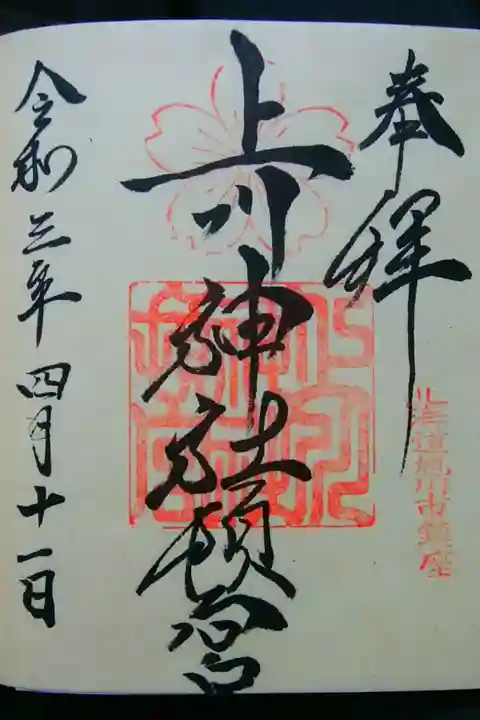 奉拝
北海道旭川市鎮座
上川神社頓宮
令和三年四月十一日